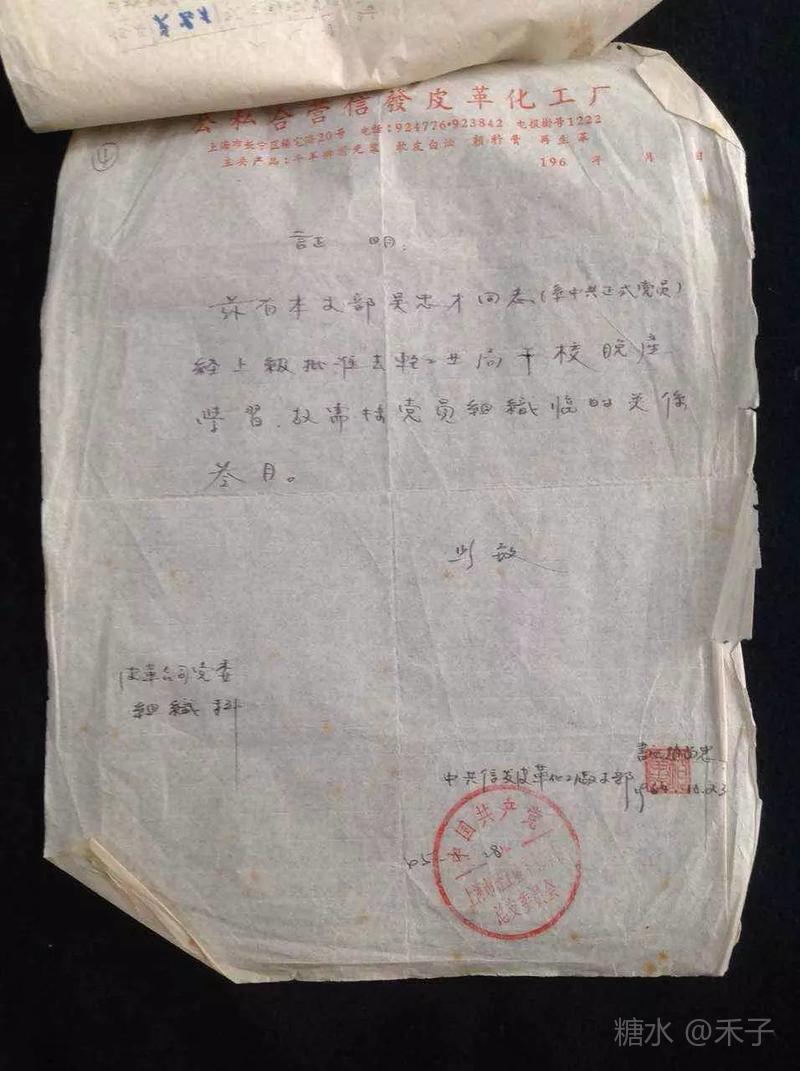 公私合营信發皮革化工厂
上海市长宁区 20号 电话:924776·923842 电报掛号1222
主要产品: 软皮白油 再生革
196 年 月 日
④
証 明:
兹有本支部吴忠才同志(系中共正式党员)
经上級批准去轻工业局干校脱产
学習.故需轉党员組織临时关係
叁月。
此致
皮革公司党委
組織科
中共信发皮革化工厰支部
10.23
中国共产党
总支委员会
糖水 @禾子